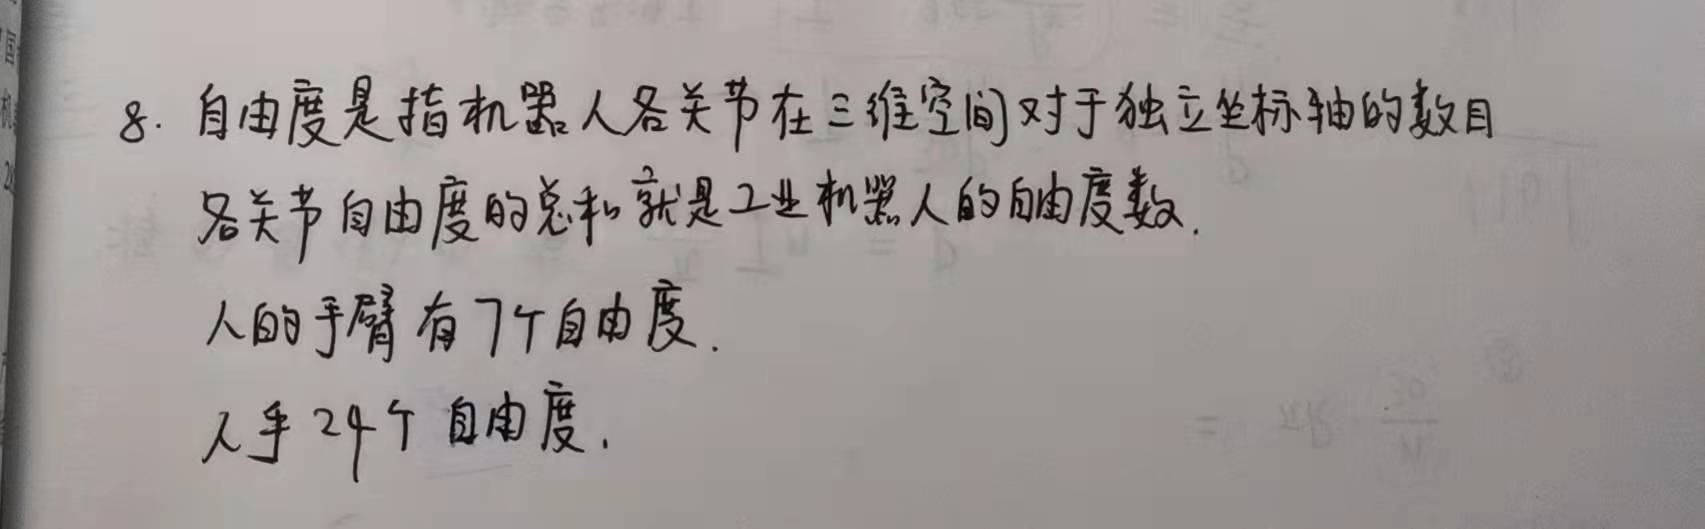 8. 自由度是指机器人各关节在三维空间对于独立坐标轴的数目
各关节自由度的总和就是工业机器人的自由度数.
人的手臂有7个自由度.
人手24个自由度.